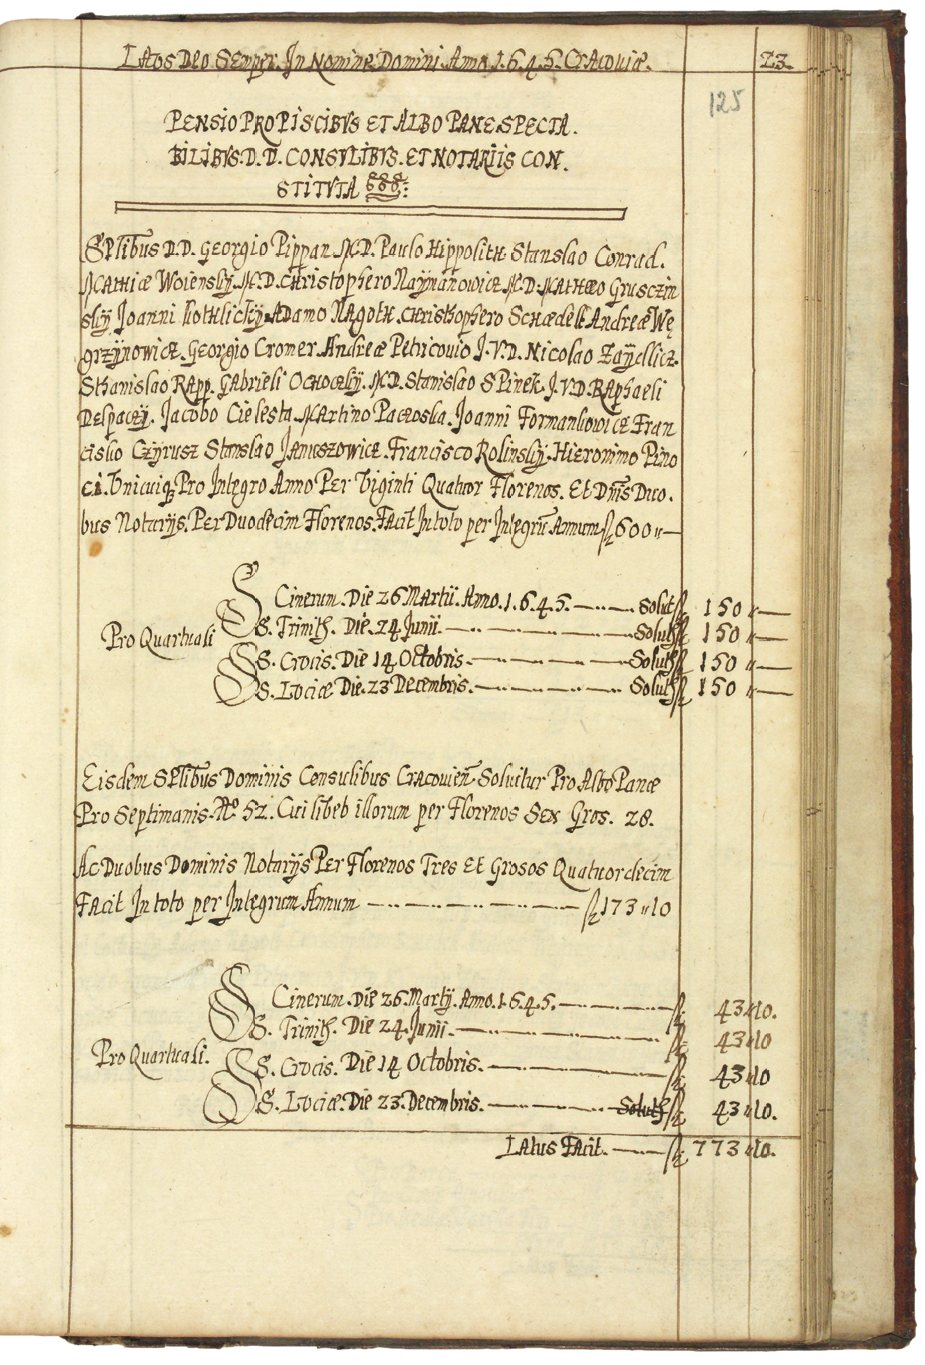 LAus DEo SEmper. In Nomine Domini Anno 1.6.4.5. CrAcoviæ. 23.
125
PENSIO PRO PISCIBVS ET ALBO PANE SPECTA.
BILIBVS. D. D. CONSVLIBVS. ET NOTARIIS CON.
STITVTA
SPtibus D.D. Georgio Pippan M.D. Paulo Hippolith Stanslao Conrad.
MAthiæ Woiensky. M.D. Christophero Naymanowicz M.D. MAthæo Grusczin
sky Joanni kothlicky ADamo NAgoth. Christhophero Schædell AndreæWę
grzynowicz. Georgio Cromer. Andreæ Petricovio J.V.D. Nicolao Zaydlicz.
Sthanislao RApp. GAbrieli Ochoczky. M.D. Stanislao SPinek. J.V.D. RAphaeli
Delpaczy. Jacobo Cielesta. MArtino Paczoska. Joanni Formankowicz Fran
cisko Czyrusz Stanslao Januszowicz. Francisco Rolinsky. Hieronimo Pino
ci. Vnicuiq Pro Integro Anno Per Viginti Quatuor Florenos. Et Dnis Duo.
bus Notarijs. Per Duodecim Florenos. FAcit In toto per Integru Annum fl 600 "—
Cinerum. Die 26 Martii. Anno. 1.6.4.5. — Solut fl 150 "—
S. Trinith. Die. 24. Junii. — Soluth fl 150 "—
Pro Quarthali
S. Crocis. Die 14 Octobris. — Soluth fl 150 "—
S. Lvciæ Die. 23 Decembris. — Soluth fl 150 "—
Eisdem SPtibus Dominis Consulibus CrAcovien Soluitur Pro Albo Pane
Pro Septimanis. No 52. Cui libeb illorum per Florenos Sex Gros. 28.
Ac Duobus Dominis Notarijs Per Florenos Tres Et Grosos Quatuordecim
FAcit In toto per Integrum Annum — fl 173 " 10
Cinerum. Die 26. Martij. Anno. 1.6.4.5. — fl 43 " 10.
S. Trinith. Die 24. Junii — fl 43 " 10
Pro Quarthali.
S. Crocis. Die 14 Octobris. — fl 43 " 10
S. Lvciæ. Die 23. Decembris. — Soluth fl 43 " 10.
LAtus FAcit. — fl 773 " 10.